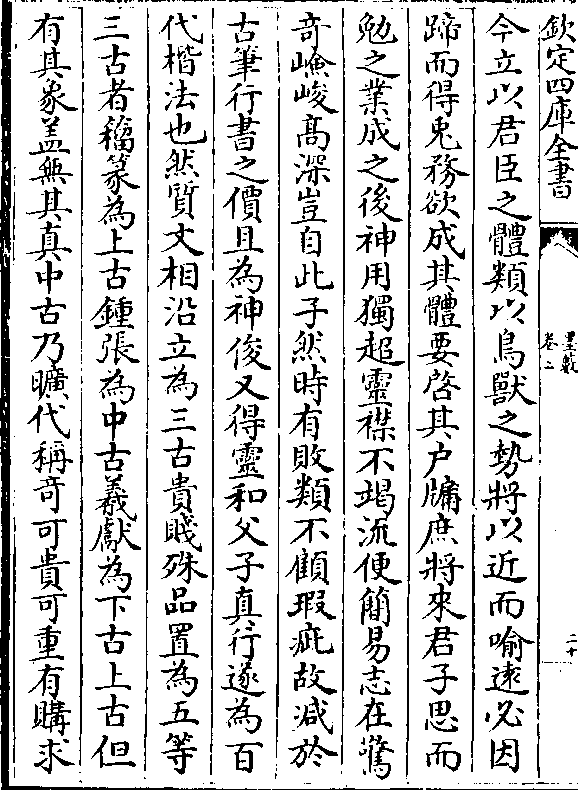 欽定四庫全書
墨藪
卷上
二十
今立以君臣之體類以鳥獸之勢將以近而喻遠必因
蹄而得兎務欲成其體要啓其户牖庶將來君子思而
勉之業成之後神用獨超靈襟不竭流便簡易志在驚
奇嶮峻髙深豈自此子然時有敗類不顧瑕疵故減於
古筆行書之價且為神俊又得靈和父子真行遂為百
代楷法也然質文相沿立為三古貴賤殊品置為五等
三古者籕篆為上古鍾張為中古羲獻為下古上古但
有其象盖無其真中古乃曠代稱奇可貴可重有購求